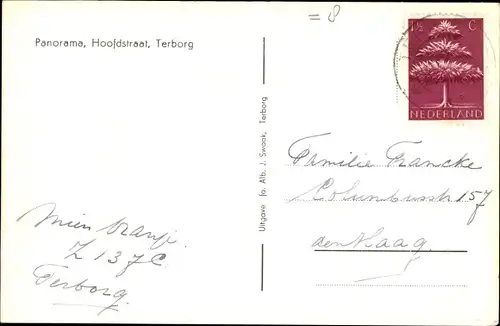 = 8
Panorama, Hoofdstraat, Terborg
1½ C
NEDERLAND
Uitgave Jo. Alb. J. Swank, Terborg
Familie Francke
Columbusstr 157
den Haag.
Mien Oranje
Z 137c
Terborg.